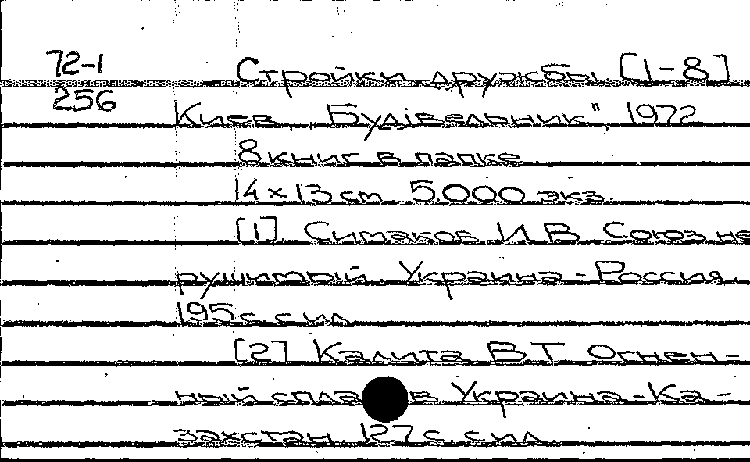 72-1 Стройки дружбы [1-8]
256
Киев „Будівельник", 1972
8 книг в папке
14 х 13 см 5.000 экз.
[1] Симаков И.В. Союз не-
рушимый. Украина - Россия.
195 с. с ил.
[2] Калита В.Т. Огнен-
ный сплав Украина - Ка-
захстан 127 с. с ил.